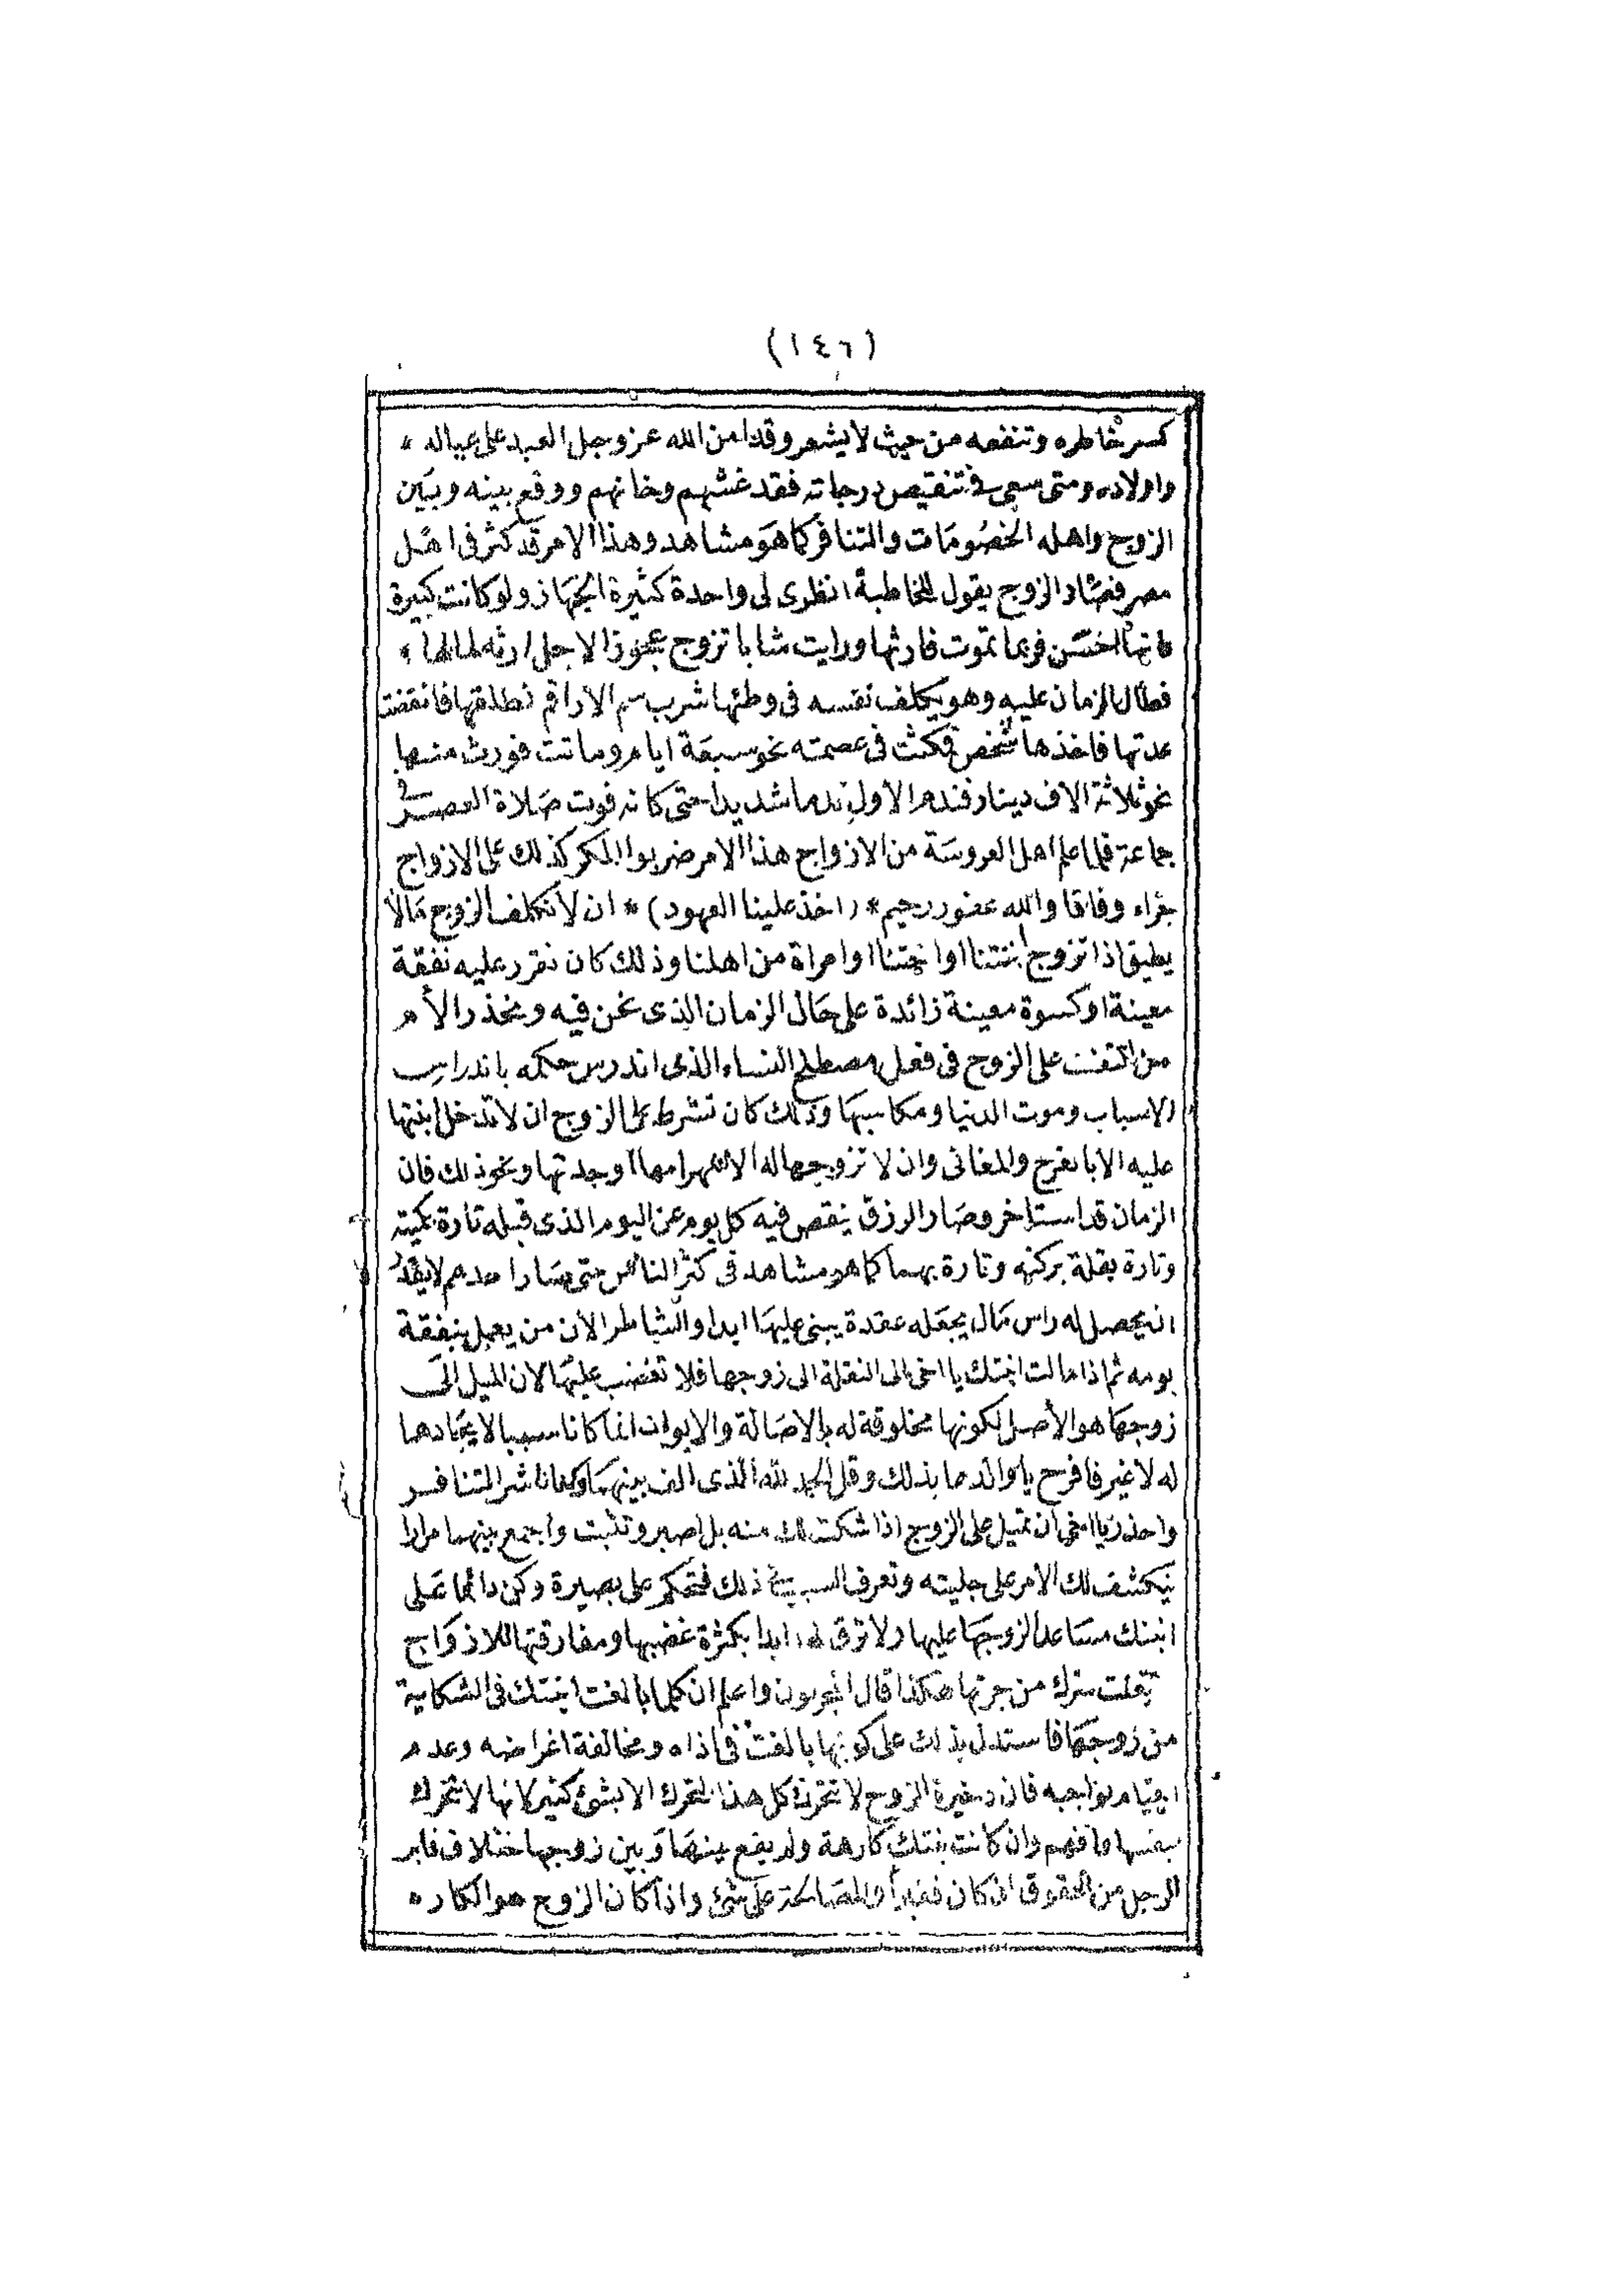 (١٤٦)
كسر خاطره وتنفعه من حيث لا يشعر وقد امن الله عز وجل العبد على عياله *
واولاده ومتى سعى في تنقيص درجاته فقد غشهم وخانهم ووقع بينه وبين
الزوج واهله الخصومات والتنافر كما هو مشاهد وهذا الامر قد كثر فى اهل
مصر فصار الزوج يقول للخاطبة انظرى لى واحدة كثيرة الجهاز ولو كانت كبيرة
فانها احسن فربما تموت فارثها ورايت شابا تزوج عجوزا لاجل ارثه لمالها *
فطال الزمان عليه وهو يكلف نفسه فى وطئها شرب سم الاراقم فطلقها فانقضت
عدتها فاخذها شخص فمكثت فى عصمته نحو سبعة ايام وماتت فورث منها
نحو ثلاثة الاف دينار فندم الاول ندما شديدا حتى كانه فوت صلاة العصر في
جماعة فلما علم اهل العروسة من الازواج هذا الامر ضربوا المكر كذلك على الازواج
جزاء وفاقا والله غفور رحيم * (اخذ علينا العهود) * ان لا نكلف الزوج مالا
يطيق اذا تزوج ابنتنا او اختنا او امراة من اهلنا وذلك كان نقرر عليه نفقة
معينة او كسوة معينة زائدة على حال الزمان الذى نحن فيه ونحذر الأم
من التعنت على الزوج فى فعل مصطلح النساء الذى اندرس حكمه باندراس
الاسباب وموت الدنيا ومكاسبها وذلك كان تشرط على الزوج ان لا تدخل ابنتها
عليه الا بالفرح والمغانى وان لا تزوجها له الا بمهر امها او جدتها ونحو ذلك فان
الزمان قد استاخر وصار الرزق ينقص فيه كل يوم عن اليوم الذى قبله تارة بكميته
وتارة بقلة بركته وتارة بهما كما هو مشاهد فى كثر الناس حتى صار احدهم لا يقدر
ان يحصل له راس مال يجعله عقدة يبنى عليها ابدا والشاطر الان من يعمل بنفقة
يومه ثم اذا مالت ابنتك يا اخى الى النقلة الى زوجها فلا تغضب عليها لان الميل الى
زوجها هو الأصل لكونها مخلوقة له بالاصالة والابوان انما كانا سببا لايجادها
له لا غير فافرح يا والدها بذلك وقل الحمد لله الذى الف بينهما وكفانا شر التنافس
واحذر يا اخى ان تميل على الزوج اذا شكت لك منه بل اصبر وتثبت واجمع بينهما مرارا
ينكشف لك الامر على جليته وتعرف السبب في ذلك فتحكم على بصيرة وكن دائما على
ابنتك مساعدا لزوجها عليها ولا ترق لها ابدا بكثرة غضبها ومفارقتها للازواج
من جرتها هكذا قال المجربون واعلم ان كلما بالغت ابنتك فى الشكاية
من زوجها فاستدل بذلك على كونها بالغت فى اذاه ومخالفة اغراضه وعدم
القيام بواجبه فان غيرة الزوج لا تتحرك كل هذا التحرك الا بشئ كثير لانها لا تتحرك
بنفسها وافهم وان كانت بنتك كارهة ولم يقع بينها وبين زوجها اختلاف فابر
الرجل من الحقوق ان كان والمصالحة على شئ واذا كان الزوج هو الكاره